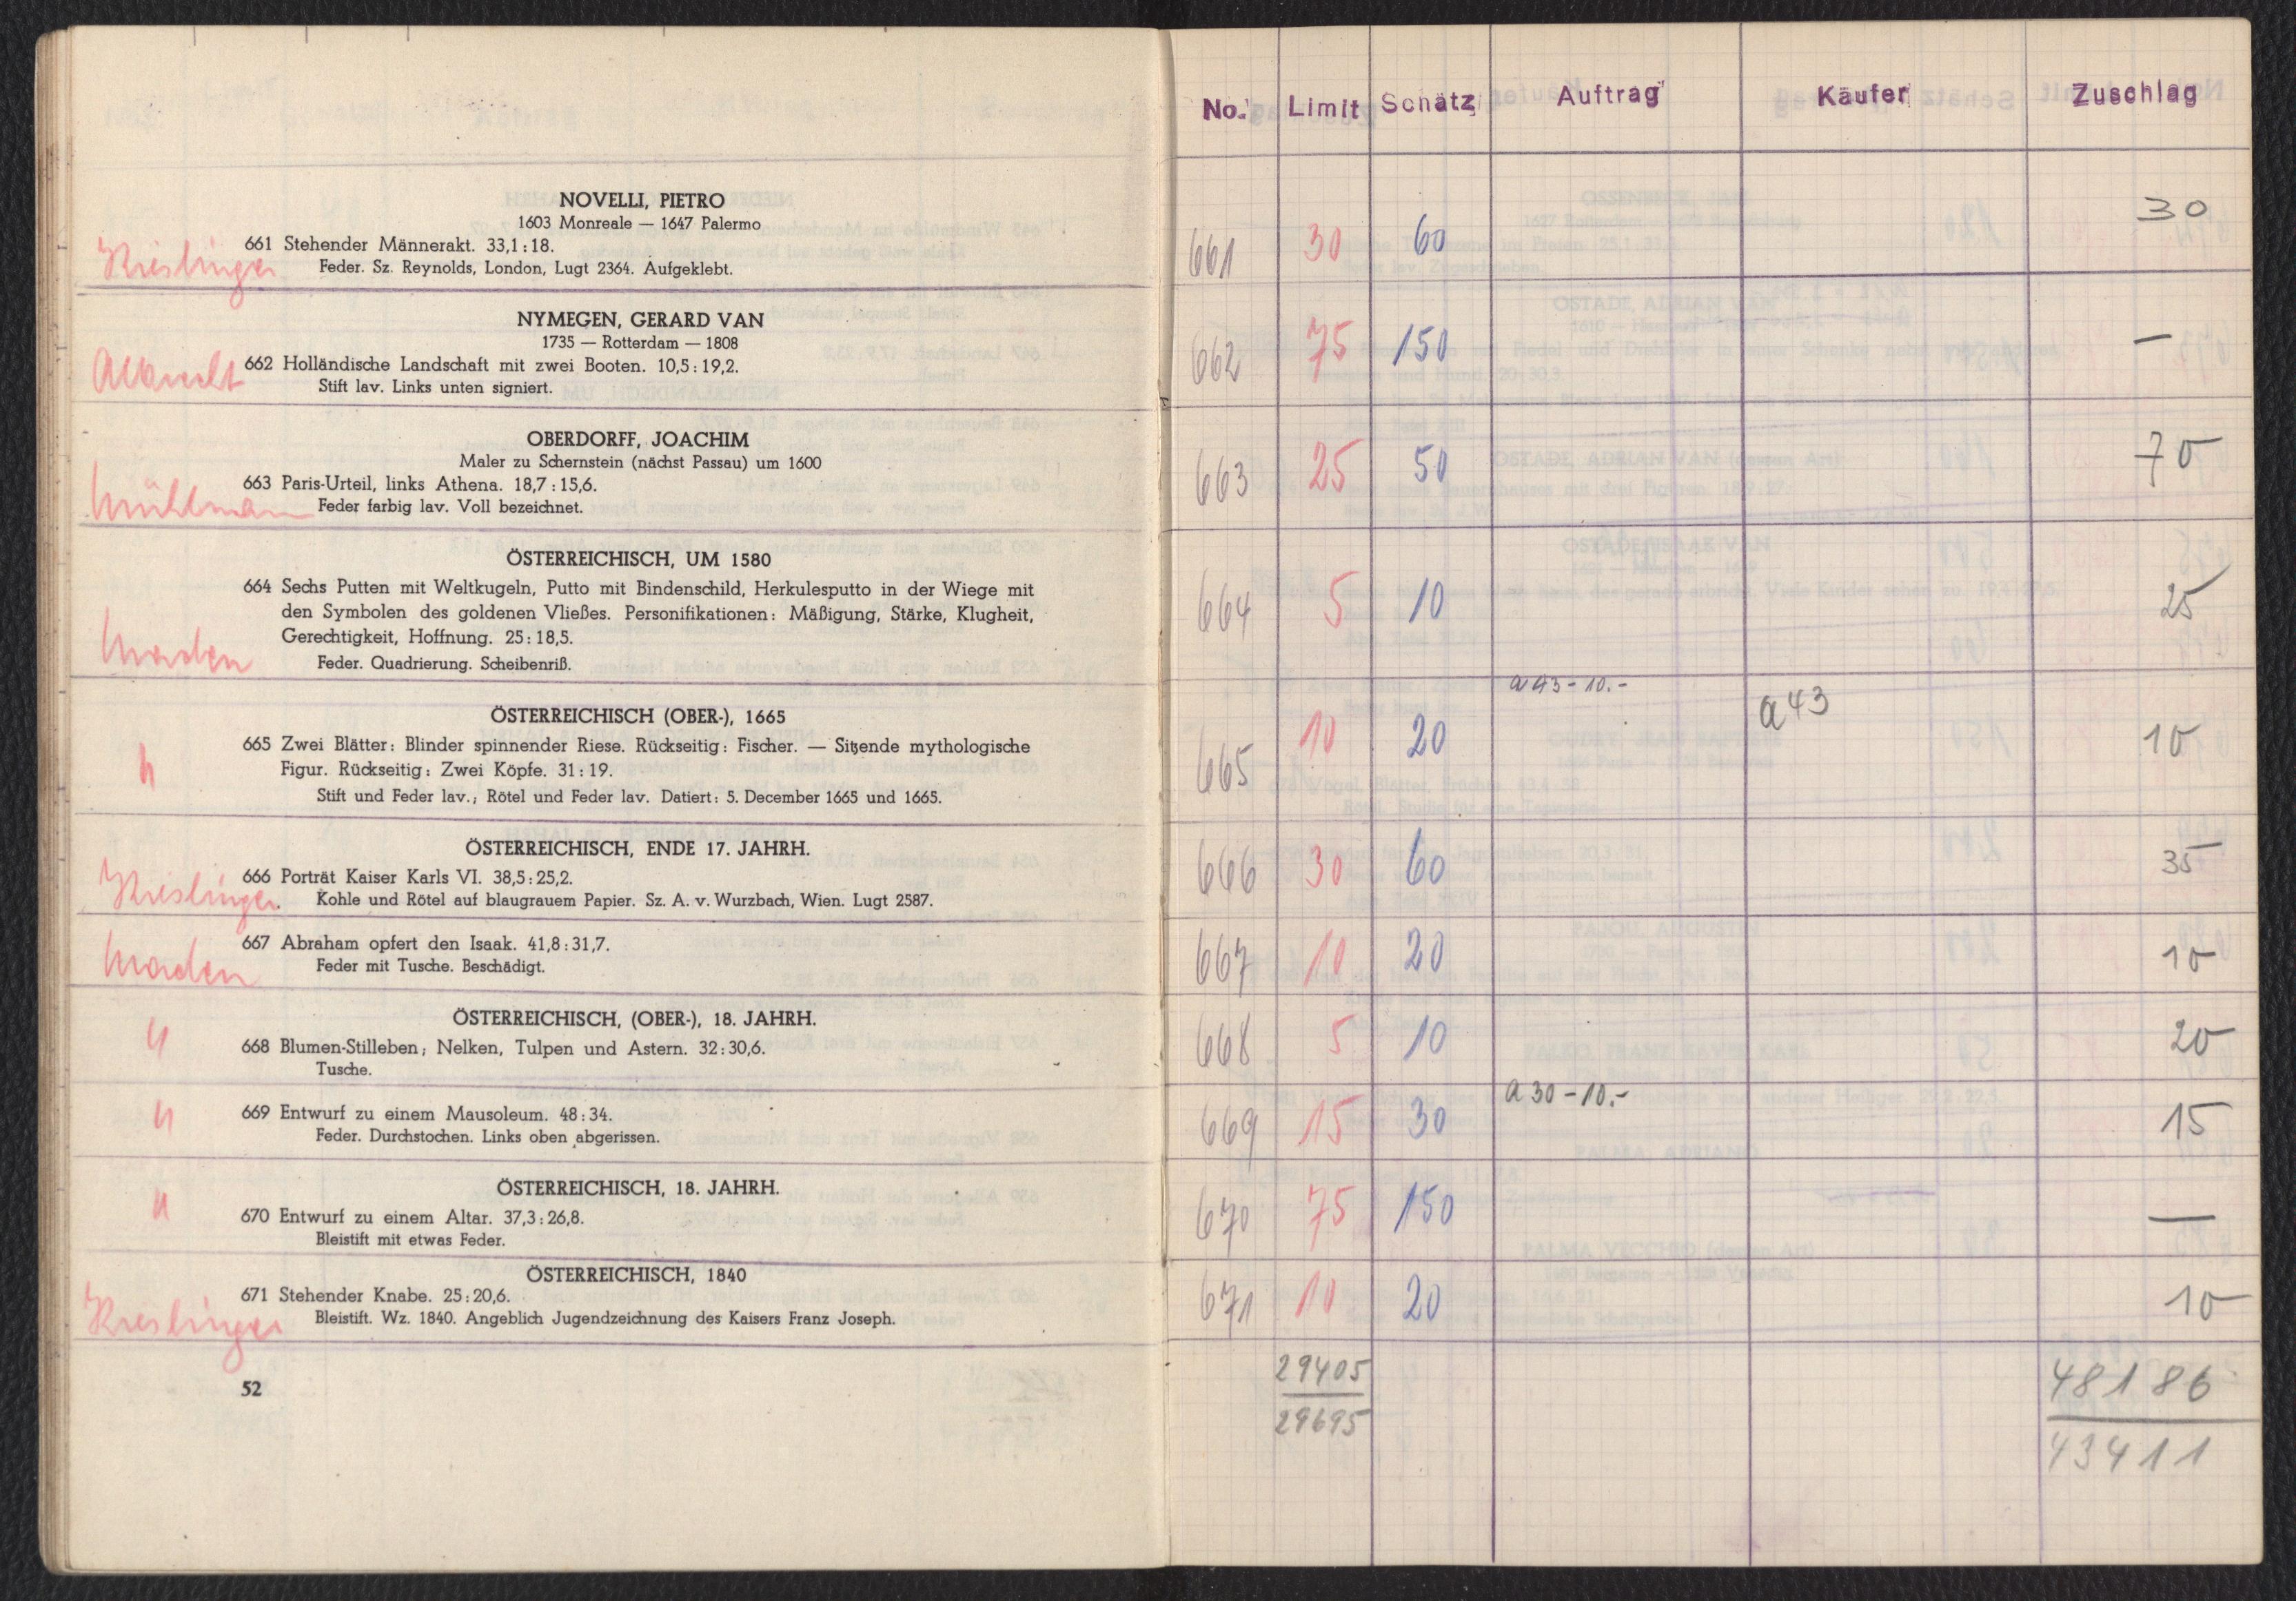 NOVELLI, PIETRO
1603 Monreale — 1647 Palermo
661 Stehender Männerakt. 33,1 : 18.
Feder. Sz. Reynolds, London, Lugt 2364. Aufgeklebt.
Kieslinger
NYMEGEN, GERARD VAN
1735 — Rotterdam — 1808
662 Holländische Landschaft mit zwei Booten. 10,5 : 19,2.
Stift lav. Links unten signiert.
Albrecht
OBERDORFF, JOACHIM
Maler zu Schernstein (nächst Passau) um 1600
663 Paris-Urteil, links Athena. 18,7 : 15,6.
Feder farbig lav. Voll bezeichnet.
Mühlmann
ÖSTERREICHISCH, UM 1580
664 Sechs Putten mit Weltkugeln, Putto mit Bindenschild, Herkulesputto in der Wiege mit
den Symbolen des goldenen Vließes. Personifikationen: Mäßigung, Stärke, Klugheit,
Gerechtigkeit, Hoffnung. 25 : 18,5.
Feder. Quadrierung. Scheibenriß.
ÖSTERREICHISCH (OBER-), 1665
665 Zwei Blätter: Blinder spinnender Riese. Rückseitig: Fischer. — Sitzende mythologische
Figur. Rückseitig: Zwei Köpfe. 31 : 19.
Stift und Feder lav.; Rötel und Feder lav. Datiert: 5. December 1665 und 1665.
ÖSTERREICHISCH, ENDE 17. JAHRH.
666 Porträt Kaiser Karls VI. 38,5 : 25,2.
Kieslinger. Kohle und Rötel auf blaugrauem Papier. Sz. A. v. Wurzbach, Wien. Lugt 2587.
667 Abraham opfert den Isaak. 41,8 : 31,7.
Feder mit Tusche. Beschädigt.
ÖSTERREICHISCH, (OBER-), 18. JAHRH.
668 Blumen-Stilleben; Nelken, Tulpen und Astern. 32 : 30,6.
Tusche.
669 Entwurf zu einem Mausoleum. 48 : 34.
Feder. Durchstochen. Links oben abgerissen.
ÖSTERREICHISCH, 18. JAHRH.
670 Entwurf zu einem Altar. 37,3 : 26,8.
Bleistift mit etwas Feder.
ÖSTERREICHISCH, 1840
671 Stehender Knabe. 25 : 20,6.
Kieslinger Bleistift. Wz. 1840. Angeblich Jugendzeichnung des Kaisers Franz Joseph.
52
No. Limit Schätz Auftrag Käufer Zuschlag
661 30 60 30
662 75 150 —
663 25 50 70
664 5 10 25
a 43 - 10.-
665 10 20 a 43 10
666 30 60 35
667 10 20 10
668 5 10 20
669 15 30 a 30 - 10.- 15
670 75 150 —
671 10 20 10
29405 48186
29695 43411